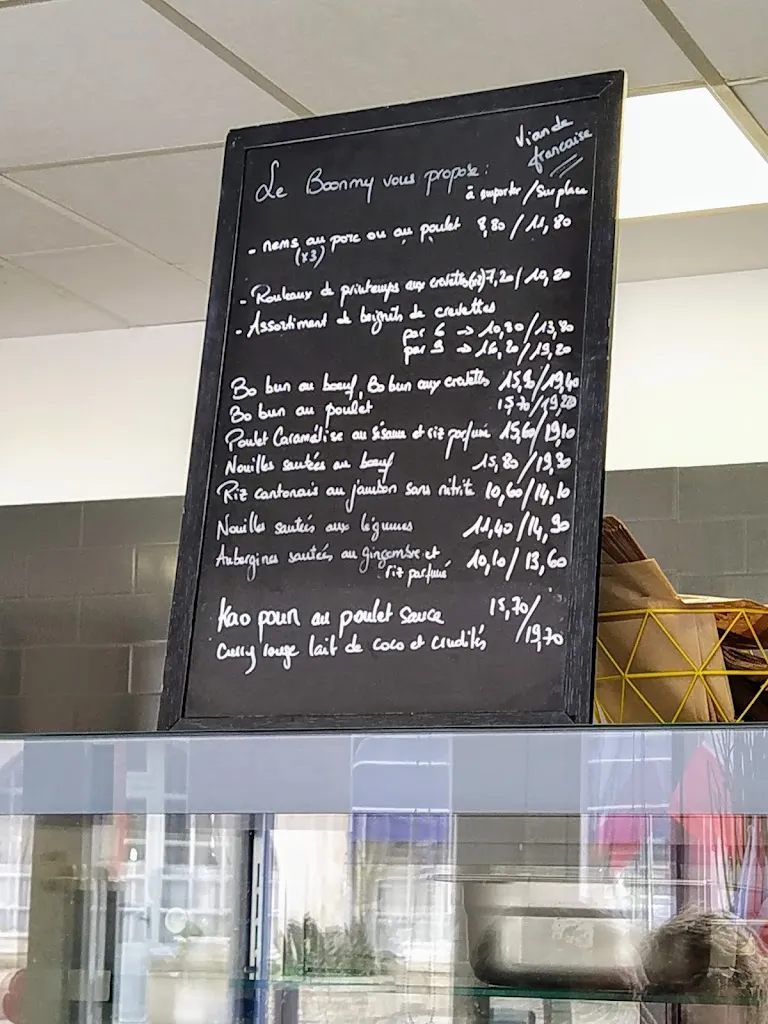 Viande
francaise
Le Boonmy vous propose :
à emporter / Sur place
- nems au porc ou au poulet 8,80 / 11,80
(x3)
- Rouleaux de printemps aux crevettes(x2) 7,20 / 10,20
- Assortiment de beignets de crevettes
par 6 → 10,80 / 13,80
par 9 → 16,20 / 19,20
Bo bun au boeuf, Bo bun aux crevettes 15,90 / 19,40
Bo bun au poulet 15,70 / 19,20
Poulet Caramélise au sésame et riz parfumé 15,60 / 19,10
Nouilles sautées au boeuf 15,80 / 19,30
Riz cantonais au jambon sans nitrite 10,60 / 14,10
Nouilles sautées aux légumes 11,40 / 14,90
Aubergines sautées au gingembre et 10,10 / 13,60
riz parfumé
Kao poun au poulet sauce 15,70 /
Curry rouge lait de coco et crudités 19,70